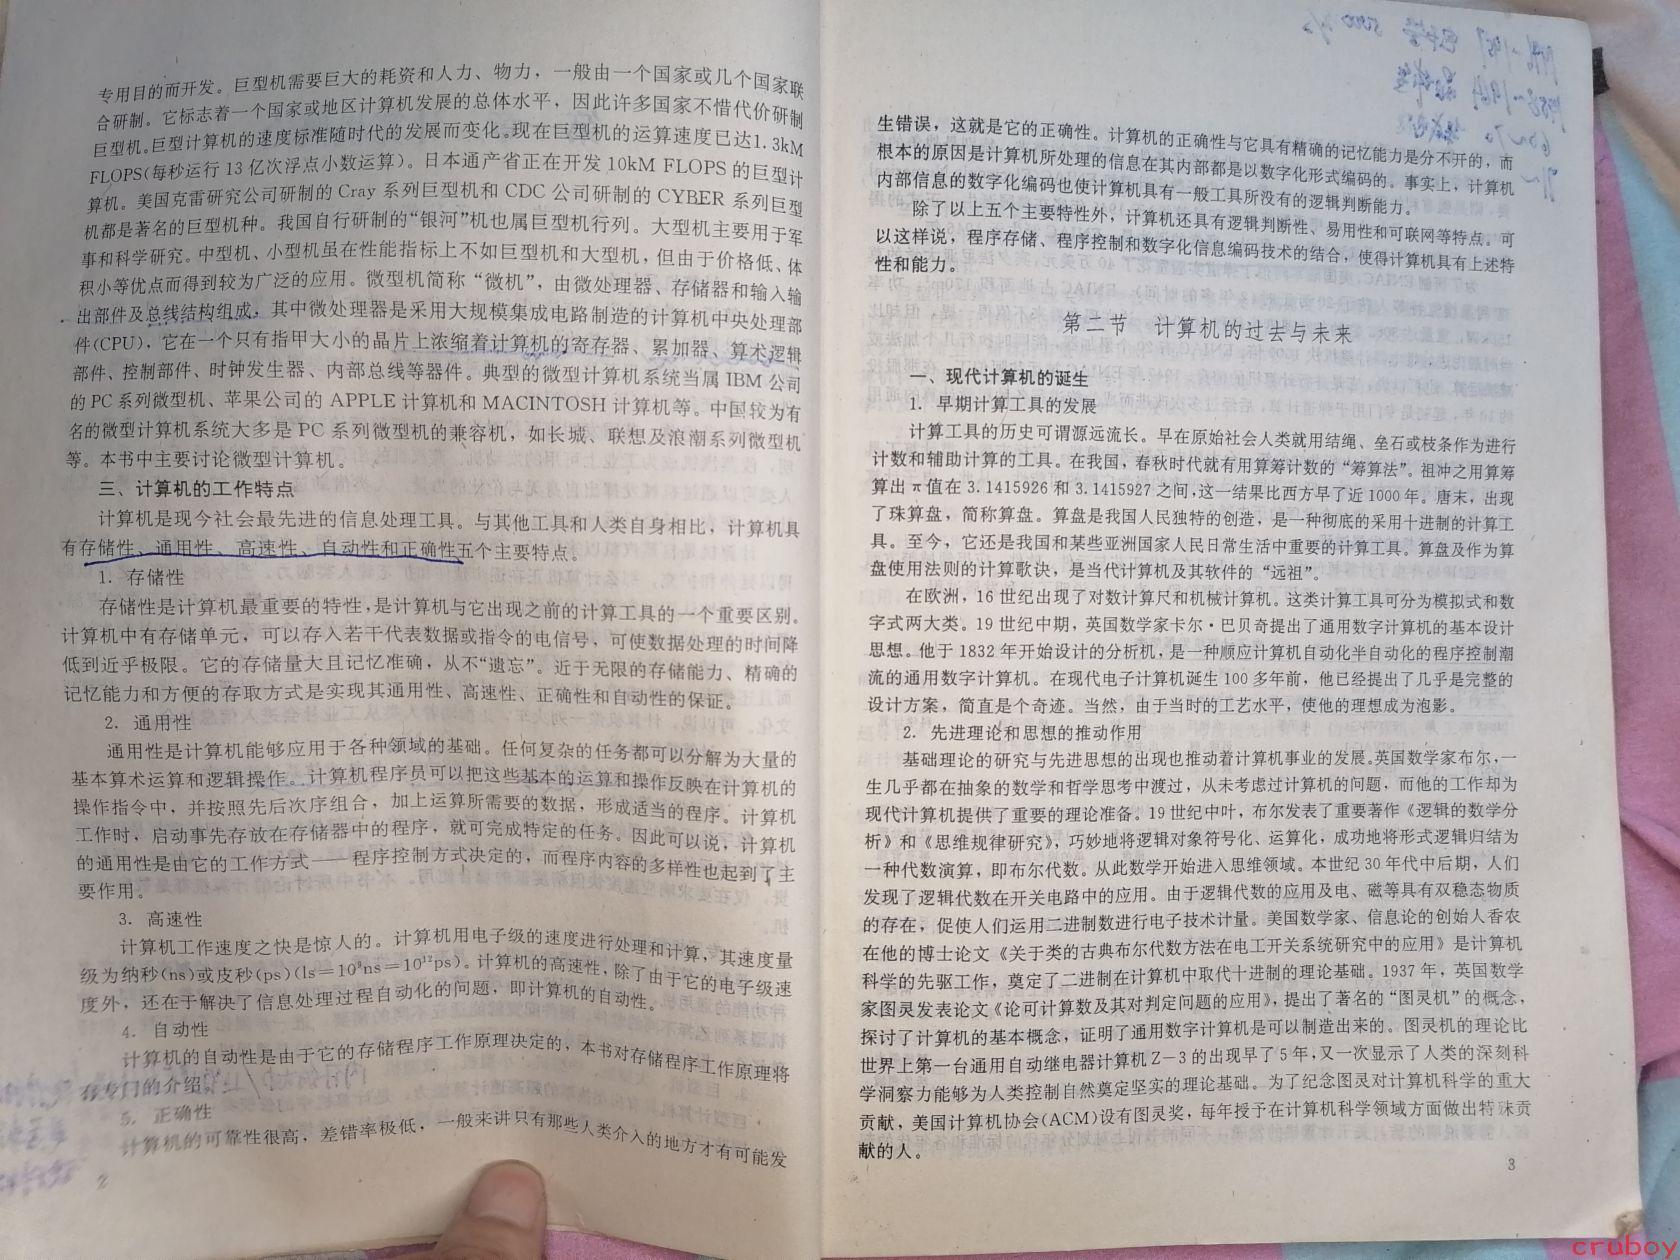 专用目的而开发。巨型机需要巨大的耗资和人力、物力，一般由一个国家或几个国家联
合研制。它标志着一个国家或地区计算机发展的总体水平，因此许多国家不惜代价研制
巨型机。巨型计算机的速度标准随时代的发展而变化。现在巨型机的运算速度已达1.3kM
FLOPS(每秒运行13亿次浮点小数运算)。日本通产省正在开发10kM FLOPS的巨型计
算机。美国克雷研究公司研制的Cray系列巨型机和CDC公司研制的CYBER系列巨型
机都是著名的巨型机种。我国自行研制的“银河”机也属巨型机行列。大型机主要用于军
事和科学研究。中型机、小型机虽在性能指标上不如巨型机和大型机，但由于价格低、体
积小等优点而得到较为广泛的应用。微型机简称“微机”，由微处理器、存储器和输入输
出部件及总线结构组成，其中微处理器是采用大规模集成电路制造的计算机中央处理部
件(CPU)，它在一个只有指甲大小的晶片上浓缩着计算机的寄存器、累加器、算术逻辑
部件、控制部件、时钟发生器、内部总线等器件。典型的微型计算机系统当属IBM公司
的PC系列微型机、苹果公司的APPLE计算机和MACINTOSH计算机等。中国较为有
名的微型计算机系统大多是PC系列微型机的兼容机，如长城、联想及浪潮系列微型机
等。本书中主要讨论微型计算机。
三、计算机的工作特点
计算机是现今社会最先进的信息处理工具。与其他工具和人类自身相比，计算机具
有存储性、通用性、高速性、自动性和正确性五个主要特点。
1. 存储性
存储性是计算机最重要的特性，是计算机与它出现之前的计算工具的一个重要区别。
计算机中有存储单元，可以存入若干代表数据或指令的电信号，可使数据处理的时间降
低到近乎极限。它的存储量大且记忆准确，从不“遗忘”。近于无限的存储能力、精确的
记忆能力和方便的存取方式是实现其通用性、高速性、正确性和自动性的保证。
2. 通用性
通用性是计算机能够应用于各种领域的基础。任何复杂的任务都可以分解为大量的
基本算术运算和逻辑操作。计算机程序员可以把这些基本的运算和操作反映在计算机的
操作指令中，并按照先后次序组合，加上运算所需要的数据，形成适当的程序。计算机
工作时，启动事先存放在存储器中的程序，就可完成特定的任务。因此可以说，计算机
的通用性是由它的工作方式——程序控制方式决定的，而程序内容的多样性也起到了主
要作用。
3. 高速性
计算机工作速度之快是惊人的。计算机用电子级的速度进行处理和计算，其速度量
级为纳秒(ns)或皮秒(ps)(ls=10⁹ns=10¹²ps)。计算机的高速性，除了由于它的电子级速
度外，还在于解决了信息处理过程自动化的问题，即计算机的自动性。
4. 自动性
计算机的自动性是由于它的存储程序工作原理决定的，本书对存储程序工作原理将
有专门的介绍。
5. 正确性
计算机的可靠性很高，差错率极低，一般来讲只有那些人类介入的地方才有可能发
2
生错误，这就是它的正确性。计算机的正确性与它具有精确的记忆能力是分不开的，而
根本的原因是计算机所处理的信息在其内部都是以数字化形式编码的。事实上，计算机
内部信息的数字化编码也使计算机具有一般工具所没有的逻辑判断能力。
除了以上五个主要特性外，计算机还具有逻辑判断性、易用性和可联网等特点。可
以这样说，程序存储、程序控制和数字化信息编码技术的结合，使得计算机具有上述特
性和能力。
第二节 计算机的过去与未来
一、现代计算机的诞生
1. 早期计算工具的发展
计算工具的历史可谓源远流长。早在原始社会人类就用结绳、垒石或枝条作为进行
计数和辅助计算的工具。在我国，春秋时代就有用算筹计数的“筹算法”。祖冲之用算筹
算出π值在3.1415926和3.1415927之间，这一结果比西方早了近1000年。唐末，出现
了珠算盘，简称算盘。算盘是我国人民独特的创造，是一种彻底的采用十进制的计算工
具。至今，它还是我国和某些亚洲国家人民日常生活中重要的计算工具。算盘及作为算
盘使用法则的计算歌诀，是当代计算机及其软件的“远祖”。
在欧洲，16世纪出现了对数计算尺和机械计算机。这类计算工具可分为模拟式和数
字式两大类。19世纪中期，英国数学家卡尔·巴贝奇提出了通用数字计算机的基本设计
思想。他于1832年开始设计的分析机，是一种顺应计算机自动化半自动化的程序控制潮
流的通用数字计算机。在现代电子计算机诞生100多年前，他已经提出了几乎是完整的
设计方案，简直是个奇迹。当然，由于当时的工艺水平，使他的理想成为泡影。
2. 先进理论和思想的推动作用
基础理论的研究与先进思想的出现也推动着计算机事业的发展。英国数学家布尔，一
生几乎都在抽象的数学和哲学思考中渡过，从未考虑过计算机的问题，而他的工作却为
现代计算机提供了重要的理论准备。19世纪中叶，布尔发表了重要著作《逻辑的数学分
析》和《思维规律研究》，巧妙地将逻辑对象符号化、运算化，成功地将形式逻辑归结为
一种代数演算，即布尔代数。从此数学开始进入思维领域。本世纪30年代中后期，人们
发现了逻辑代数在开关电路中的应用。由于逻辑代数的应用及电、磁等具有双稳态物质
的存在，促使人们运用二进制数进行电子技术计量。美国数学家、信息论的创始人香农
在他的博士论文《关于类的古典布尔代数方法在电工开关系统研究中的应用》是计算机
科学的先驱工作，奠定了二进制在计算机中取代十进制的理论基础。1937年，英国数学
家图灵发表论文《论可计算数及其对判定问题的应用》，提出了著名的“图灵机”的概念，
探讨了计算机的基本概念，证明了通用数字计算机是可以制造出来的。图灵机的理论比
世界上第一台通用自动继电器计算机Z-3的出现早了5年，又一次显示了人类的深刻科
学洞察力能够为人类控制自然奠定坚实的理论基础。为了纪念图灵对计算机科学的重大
贡献，美国计算机协会(ACM)设有图灵奖，每年授予在计算机科学领域方面做出特殊贡
献的人。
3
cruboy